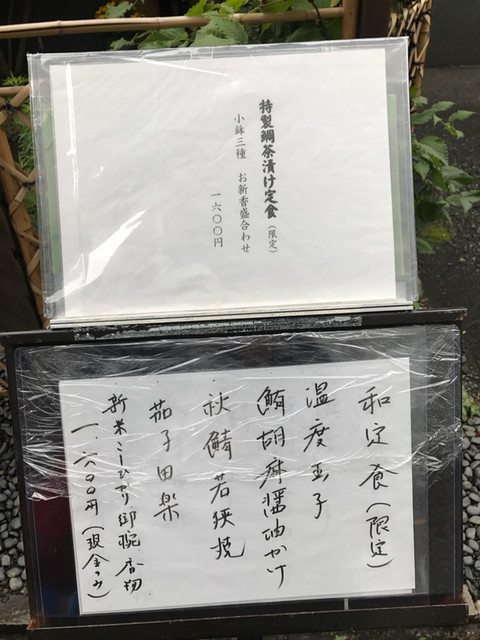 特製鯛茶漬け定食(限定)
小鉢三種 お新香盛合わせ
一六〇〇円
和定食(限定)
温度玉子
鮪胡麻醤油かけ
秋鯖若狭焼
茄子田楽
新米こしひかり御椀香物
一、六〇〇円(現金のみ)